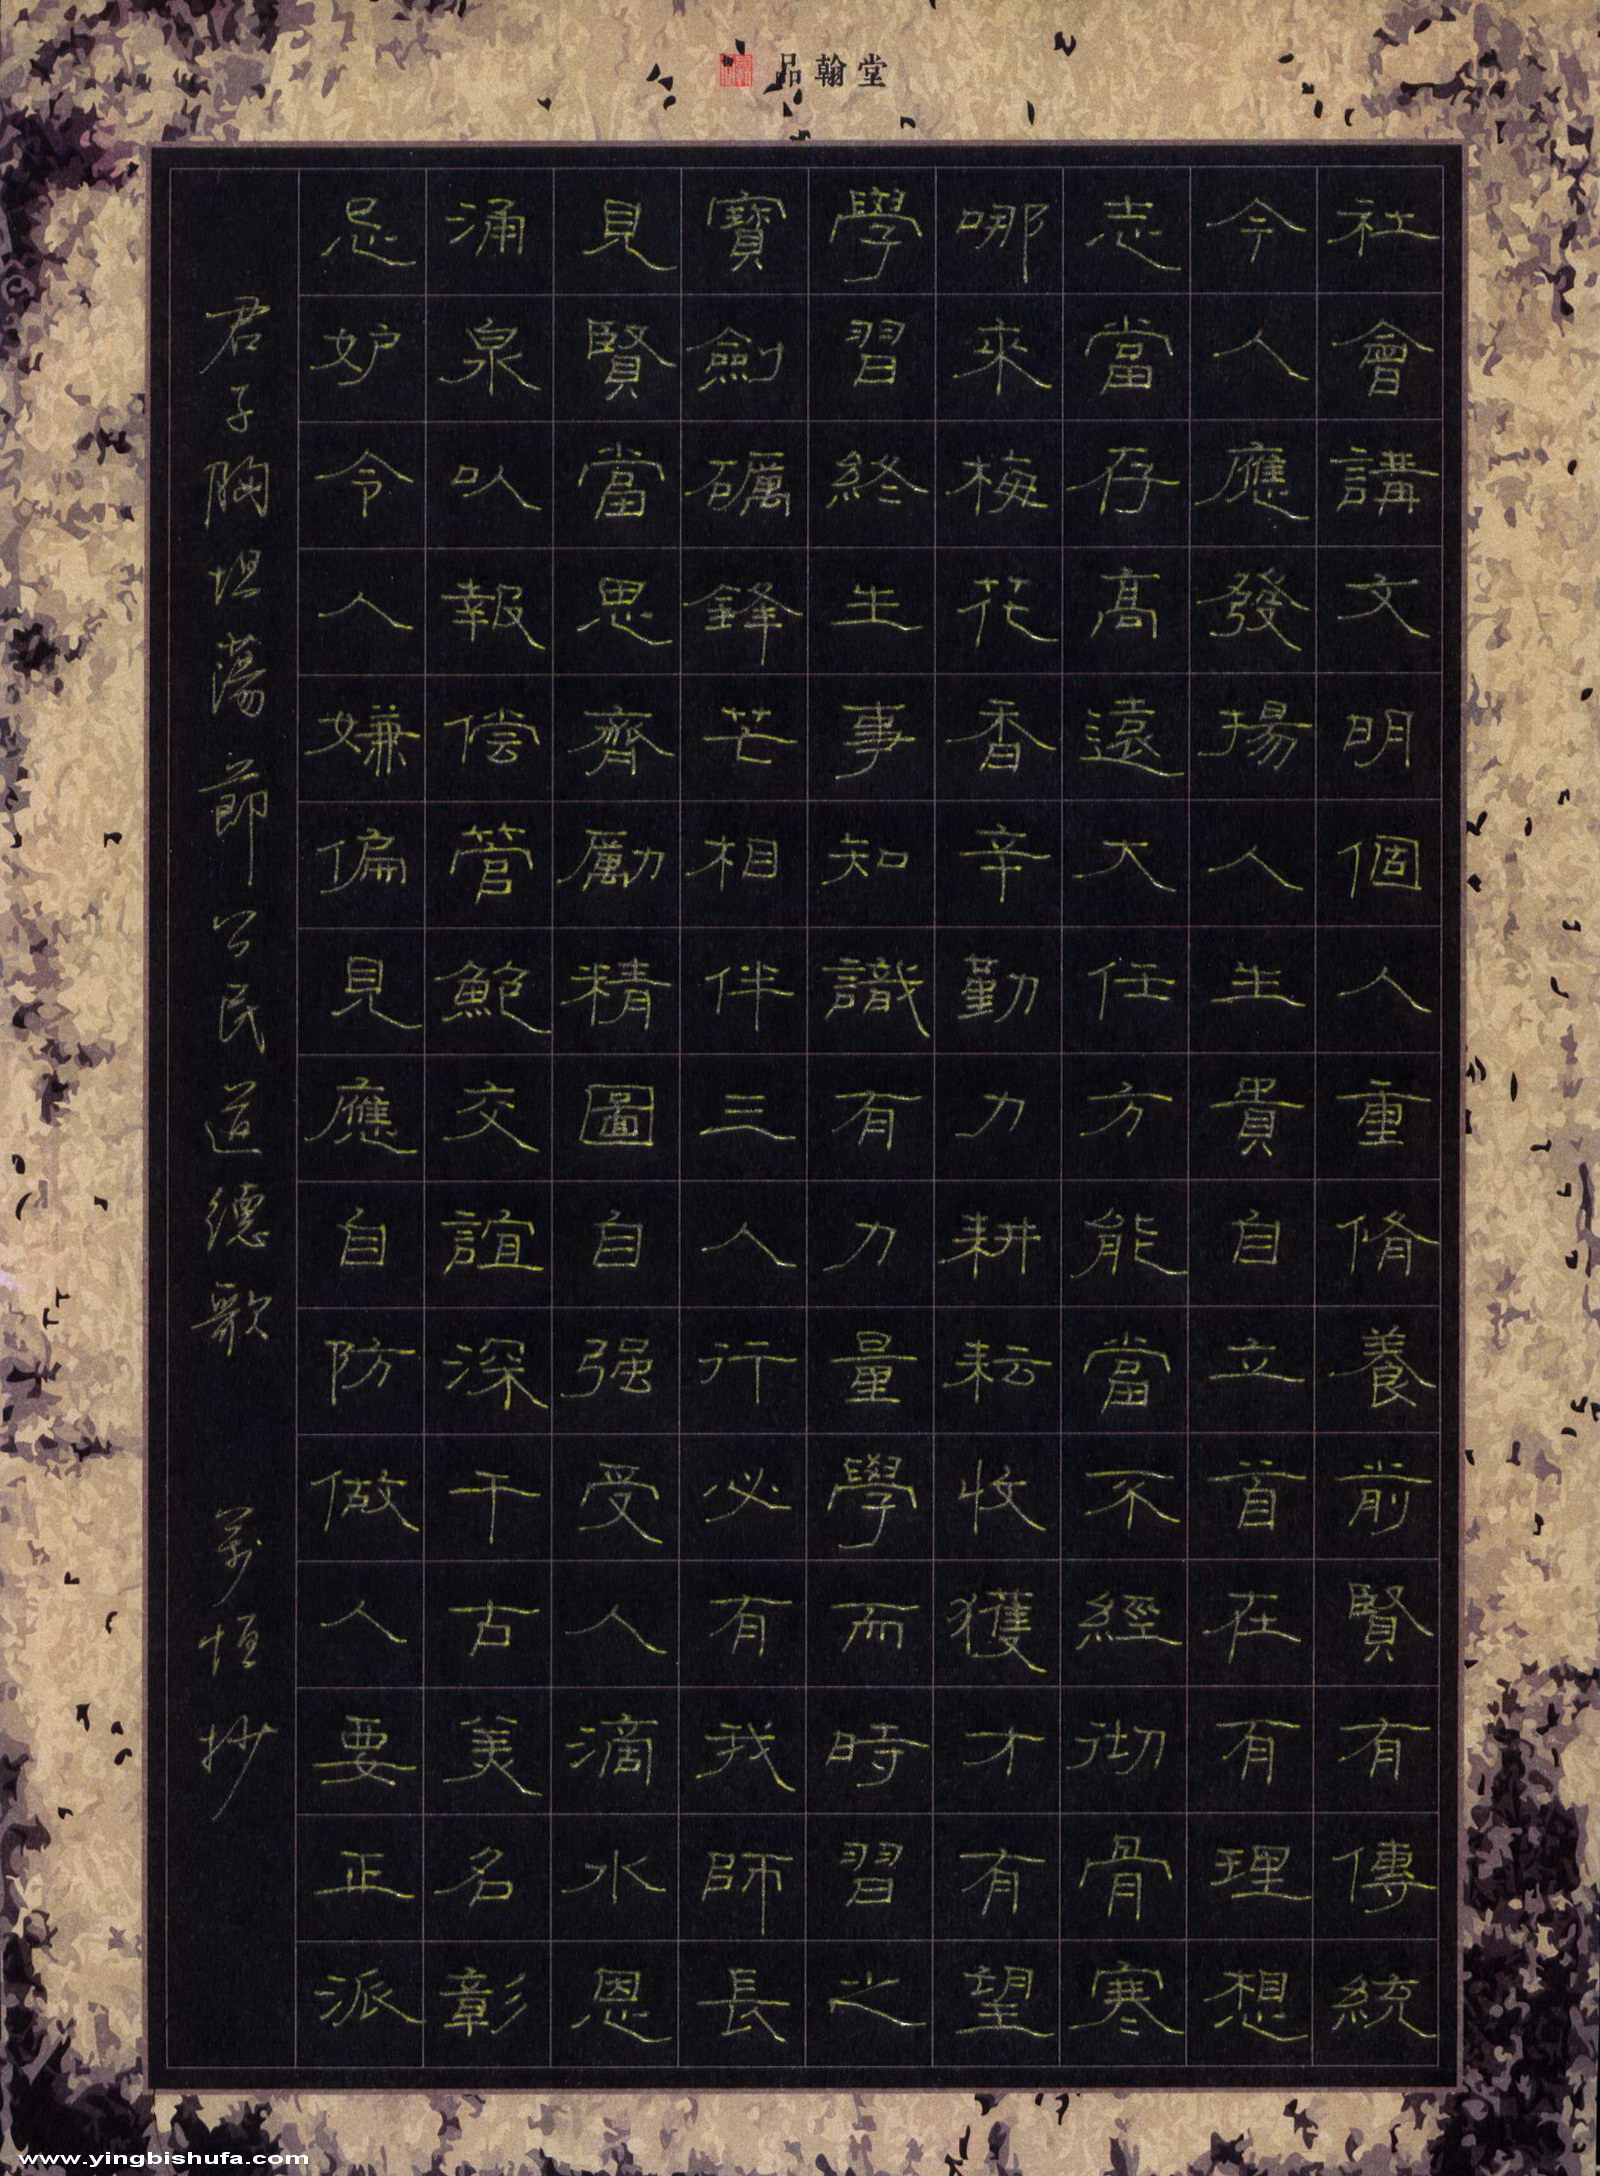 品翰堂
社會講文明個人重脩養前賢有傳統
今人應發揚人生貴自立首在有理想
志當存高遠大任方能當不經彻骨寒
哪來梅花香辛勤力耕耘收獲才有望
學習終生事知識有力量學而時習之
寶劍礪鋒芒相伴三人行必有我師長
見賢當思齊勵精圖自强受人滴水恩
涌泉以報偿管鮑交誼深千古美名彰
忌妒令人嫌偏見應自防做人要正派
君子胸坦蕩 節公民道德歌 萬恒抄
www.yingbishufa.com